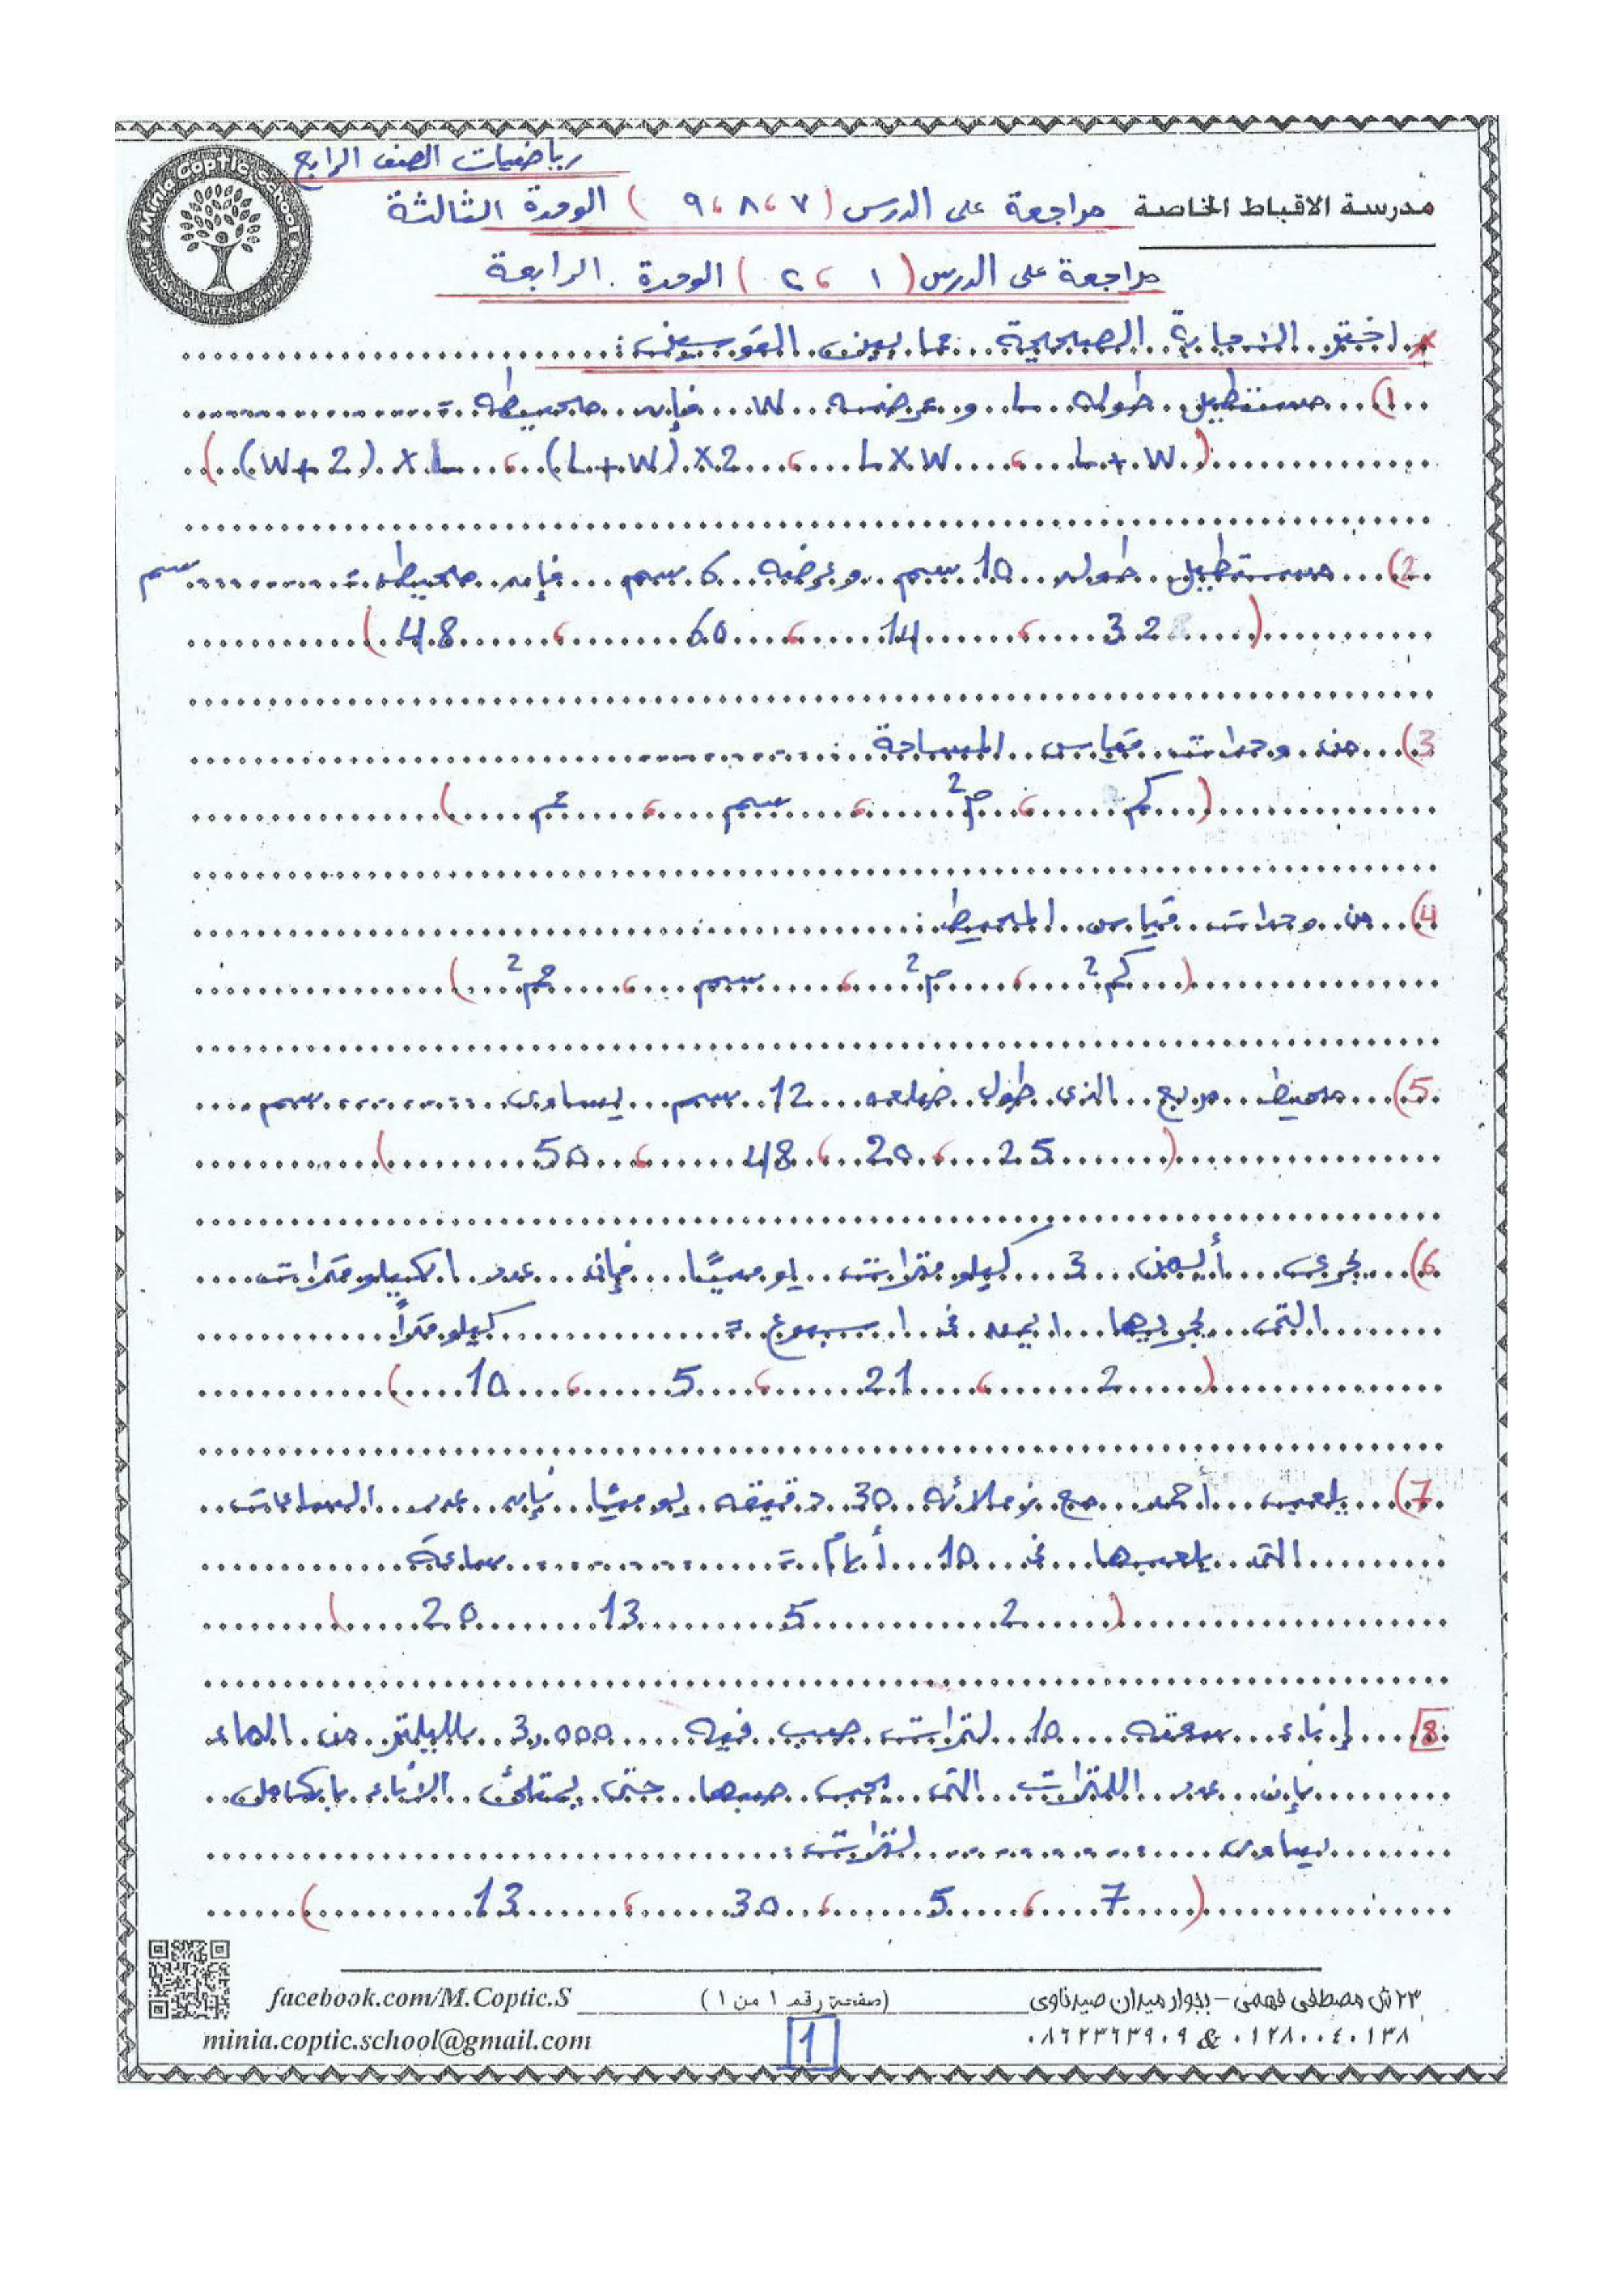 رياضيات الصف الرابع
مدرسة الاقباط الخاصة مراجعة على الدرس (٧، ٨، ٩) الوحدة الثالثة
مراجعة على الدرس (١، ٢) الوحدة الرابعة
Minia Coptic School
KINDERGARTEN & PRIMARY
* اختر الاجابة الصحيحة مما بين القوسين:
1) مستطيل طوله L وعرضه W فإن محيطه = ........
(L + W ، L X W ، (L + W) X 2 ، (W + 2) X L)
2) مستطيل طوله 10 سم وعرضه 6 سم فإن محيطه = ........ سم
(32 ، 14 ، 60 ، 48)
3) من وحدات قياس المساحة ........
(كم ، م² ، سم ، مم)
4) من وحدات قياس المحيط ........
(كم² ، م² ، سم ، مم²)
5) محيط مربع الذى طول ضلعه 12 سم يساوى ........ سم
(25 ، 20 ، 48 ، 50)
6) يجرى أيمن 3 كيلو مترات يوميًا فإن عدد الكيلو مترات
التى يجريها ايمن فى اسبوع = ........ كيلو مترًا
(2 ، 21 ، 5 ، 10)
7) يلعب أحمد مع زملائه 30 دقيقه يوميًا فإن عدد الساعات
التى يلعبها فى 10 أيام = ........ ساعة
(2 5 13 20)
8) إناء سعته 10 لترات صب فيه 3,000 ملليلتر من الماء
فإن عدد اللترات التى يجب صبها حتى يمتلئ الاناء بالكامل
يساوى ........ لترات
(7 ، 5 ، 30 ، 13)
٢٣ ش مصطفى فهمى - بجوار ميدان صيدناوى (صفحة رقم ١ من ١) facebook.com/M.Coptic.S
٠١٢٨٠٠٤٠١٣٨ & ٠٨٦٢٣٦٣٩٠٩ 1 minia.coptic.school@gmail.com